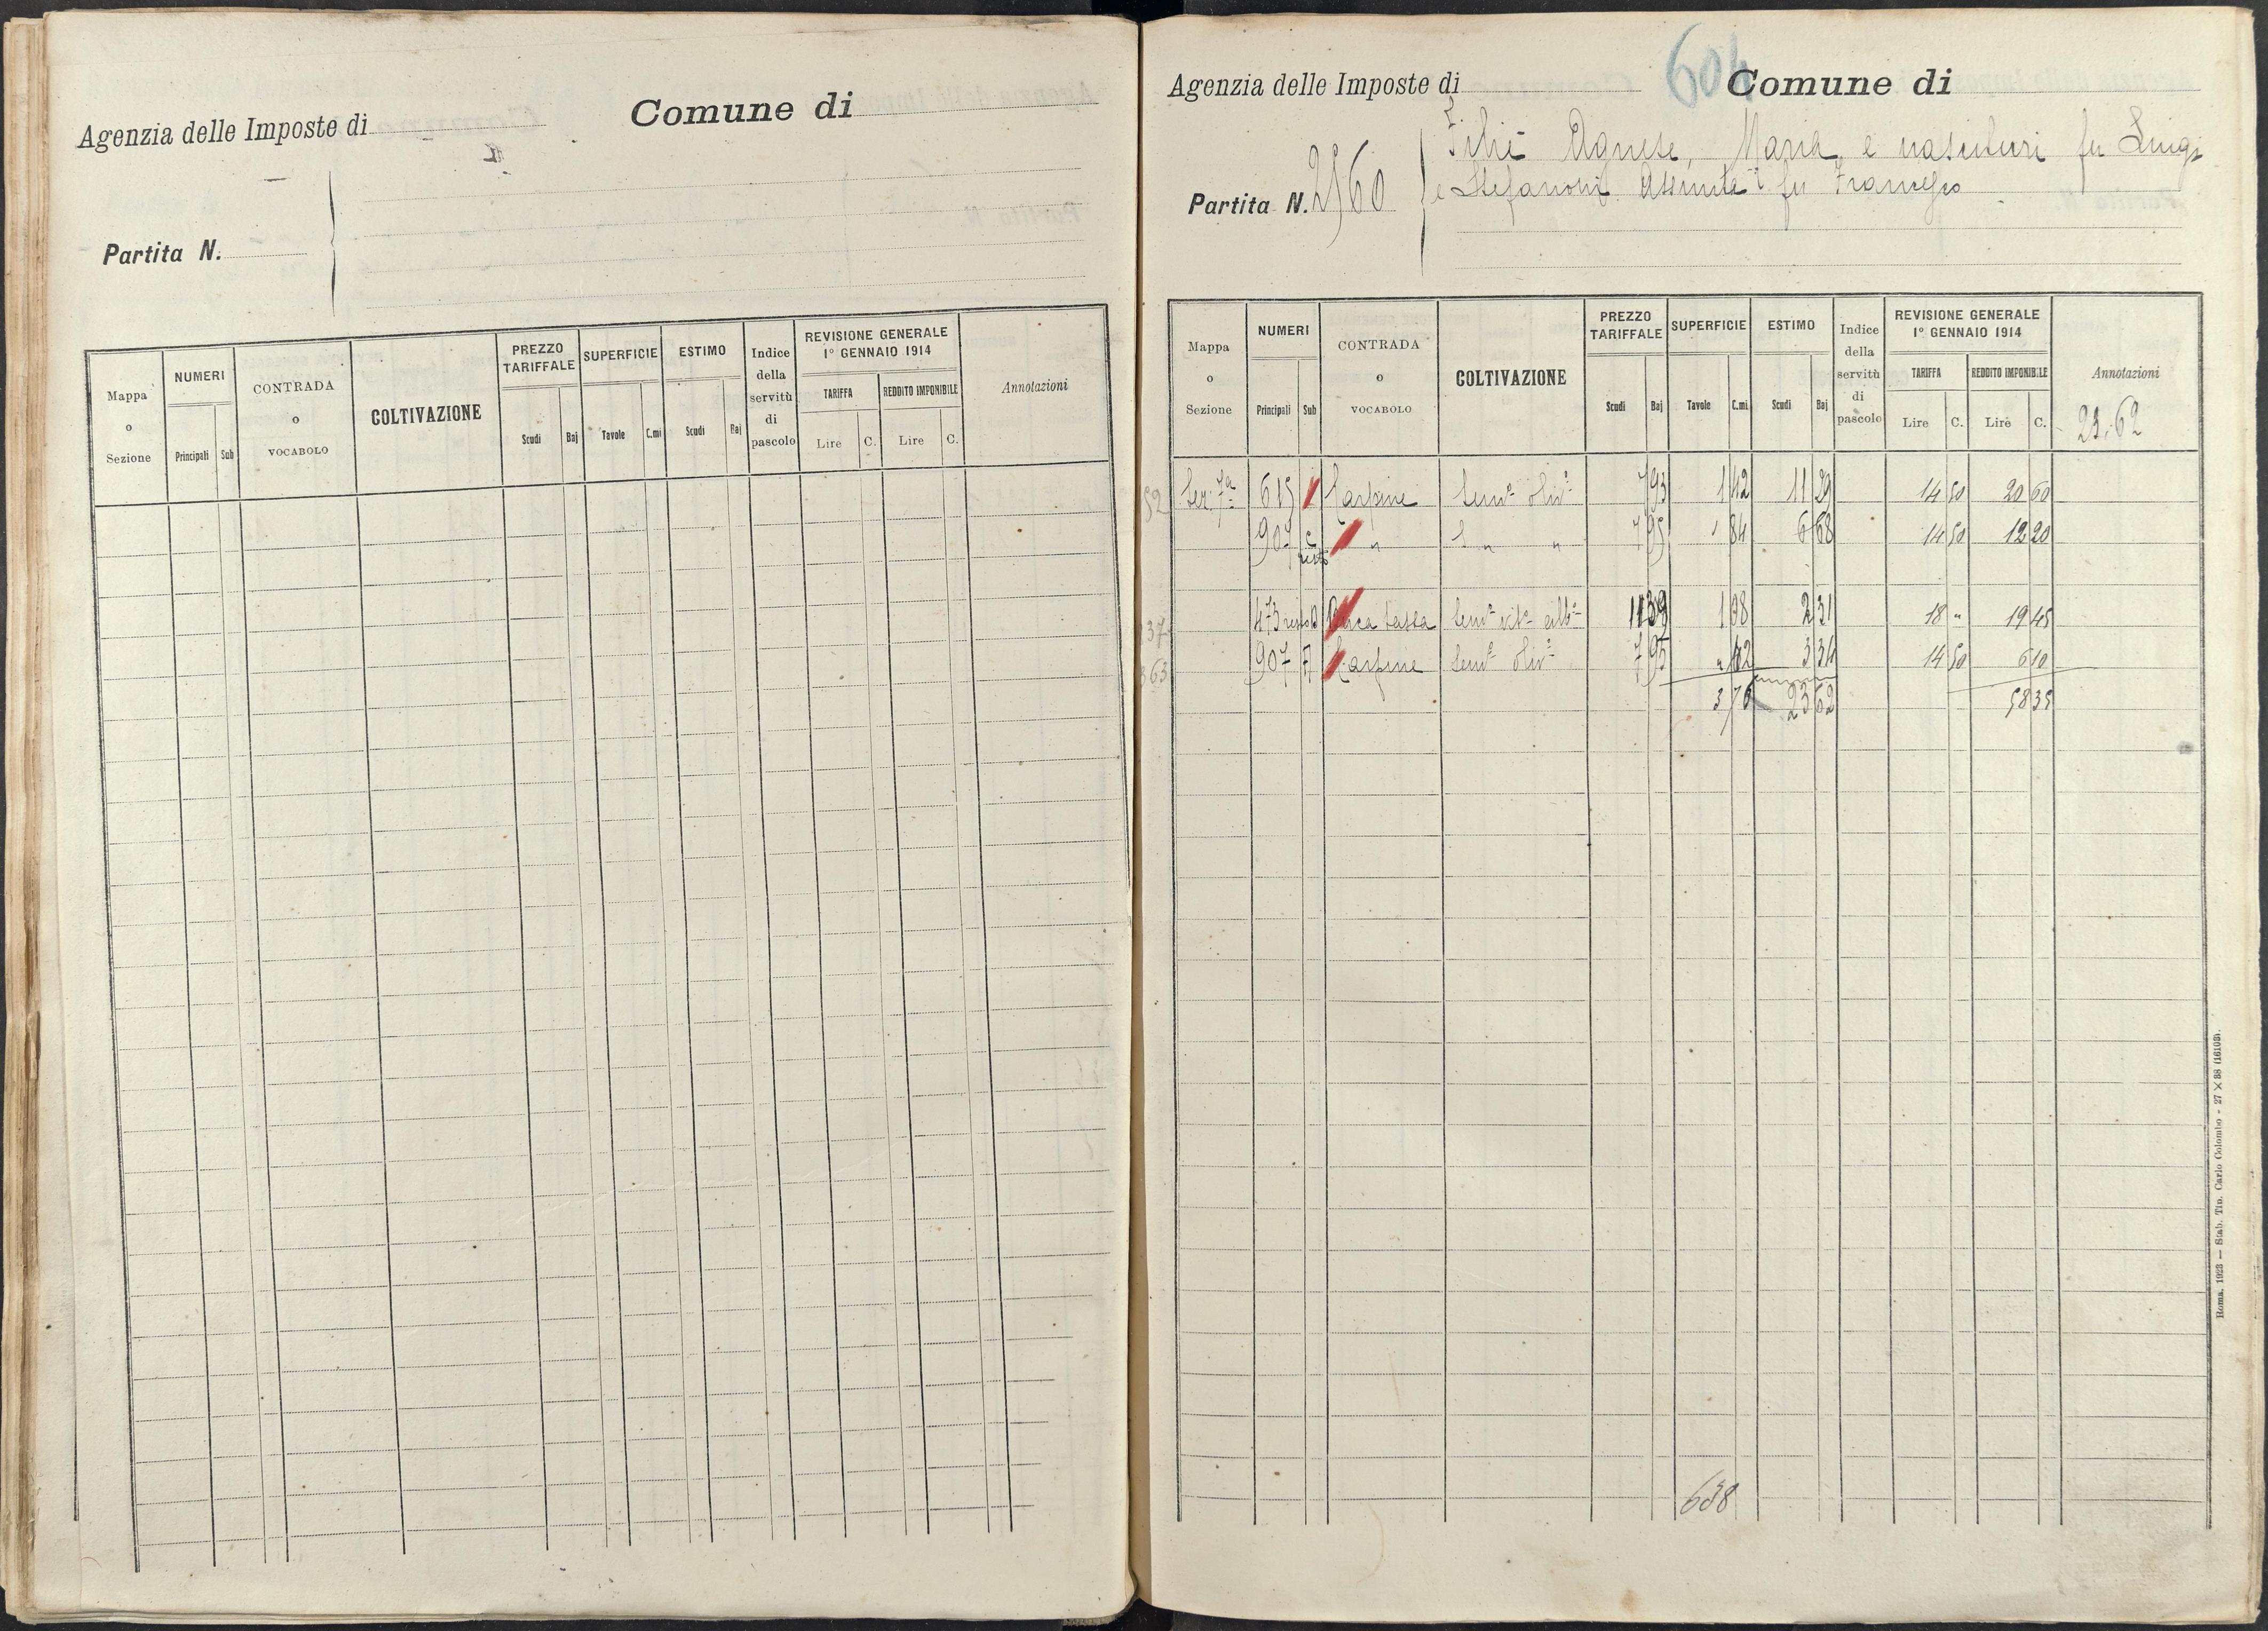 Agenzia delle Imposte di
Comune di
Partita N.
Mappa o Sezione
NUMERI
Principali
Sub
CONTRADA o VOCABOLO
COLTIVAZIONE
PREZZO TARIFFALE
Scudi
Baj
SUPERFICIE
Tavole
C.mi
ESTIMO
Scudi
Baj
Indice della servitù di pascolo
REVISIONE GENERALE
1º GENNAIO 1914
TARIFFA
Lire
C.
REDDITO IMPONIBILE
Lire
C.
Annotazioni
604
Agenzia delle Imposte di
Comune di
Partita N. 2560
Agnese, Maria, e nascituri fu Luigi
e Stefanoni Assunta fu Francesco
Mappa o Sezione
NUMERI
Principali
Sub
CONTRADA o VOCABOLO
COLTIVAZIONE
PREZZO TARIFFALE
Scudi
Baj
SUPERFICIE
Tavole
C.mi
ESTIMO
Scudi
Baj
Indice della servitù di pascolo
REVISIONE GENERALE
1º GENNAIO 1914
TARIFFA
Lire
C.
REDDITO IMPONIBILE
Lire
C.
Annotazioni
23,62
52 Sez. 7ª 615 Carpine Semº olivº 7 95 1 42 11 29 14 50 20 60
907 C resto " " " 7 95 " 84 6 68 14 50 12 20
37 473 resto 1 08 2 31 18 " 19 45
363 907 Carpine Semº olivº 7 95 " 42 3 34 14 50 6 10
3 76 23 62 58 35
638
Roma, 1923 — Stab. Tip. Carlo Colombo - 27 × 38 (16103).